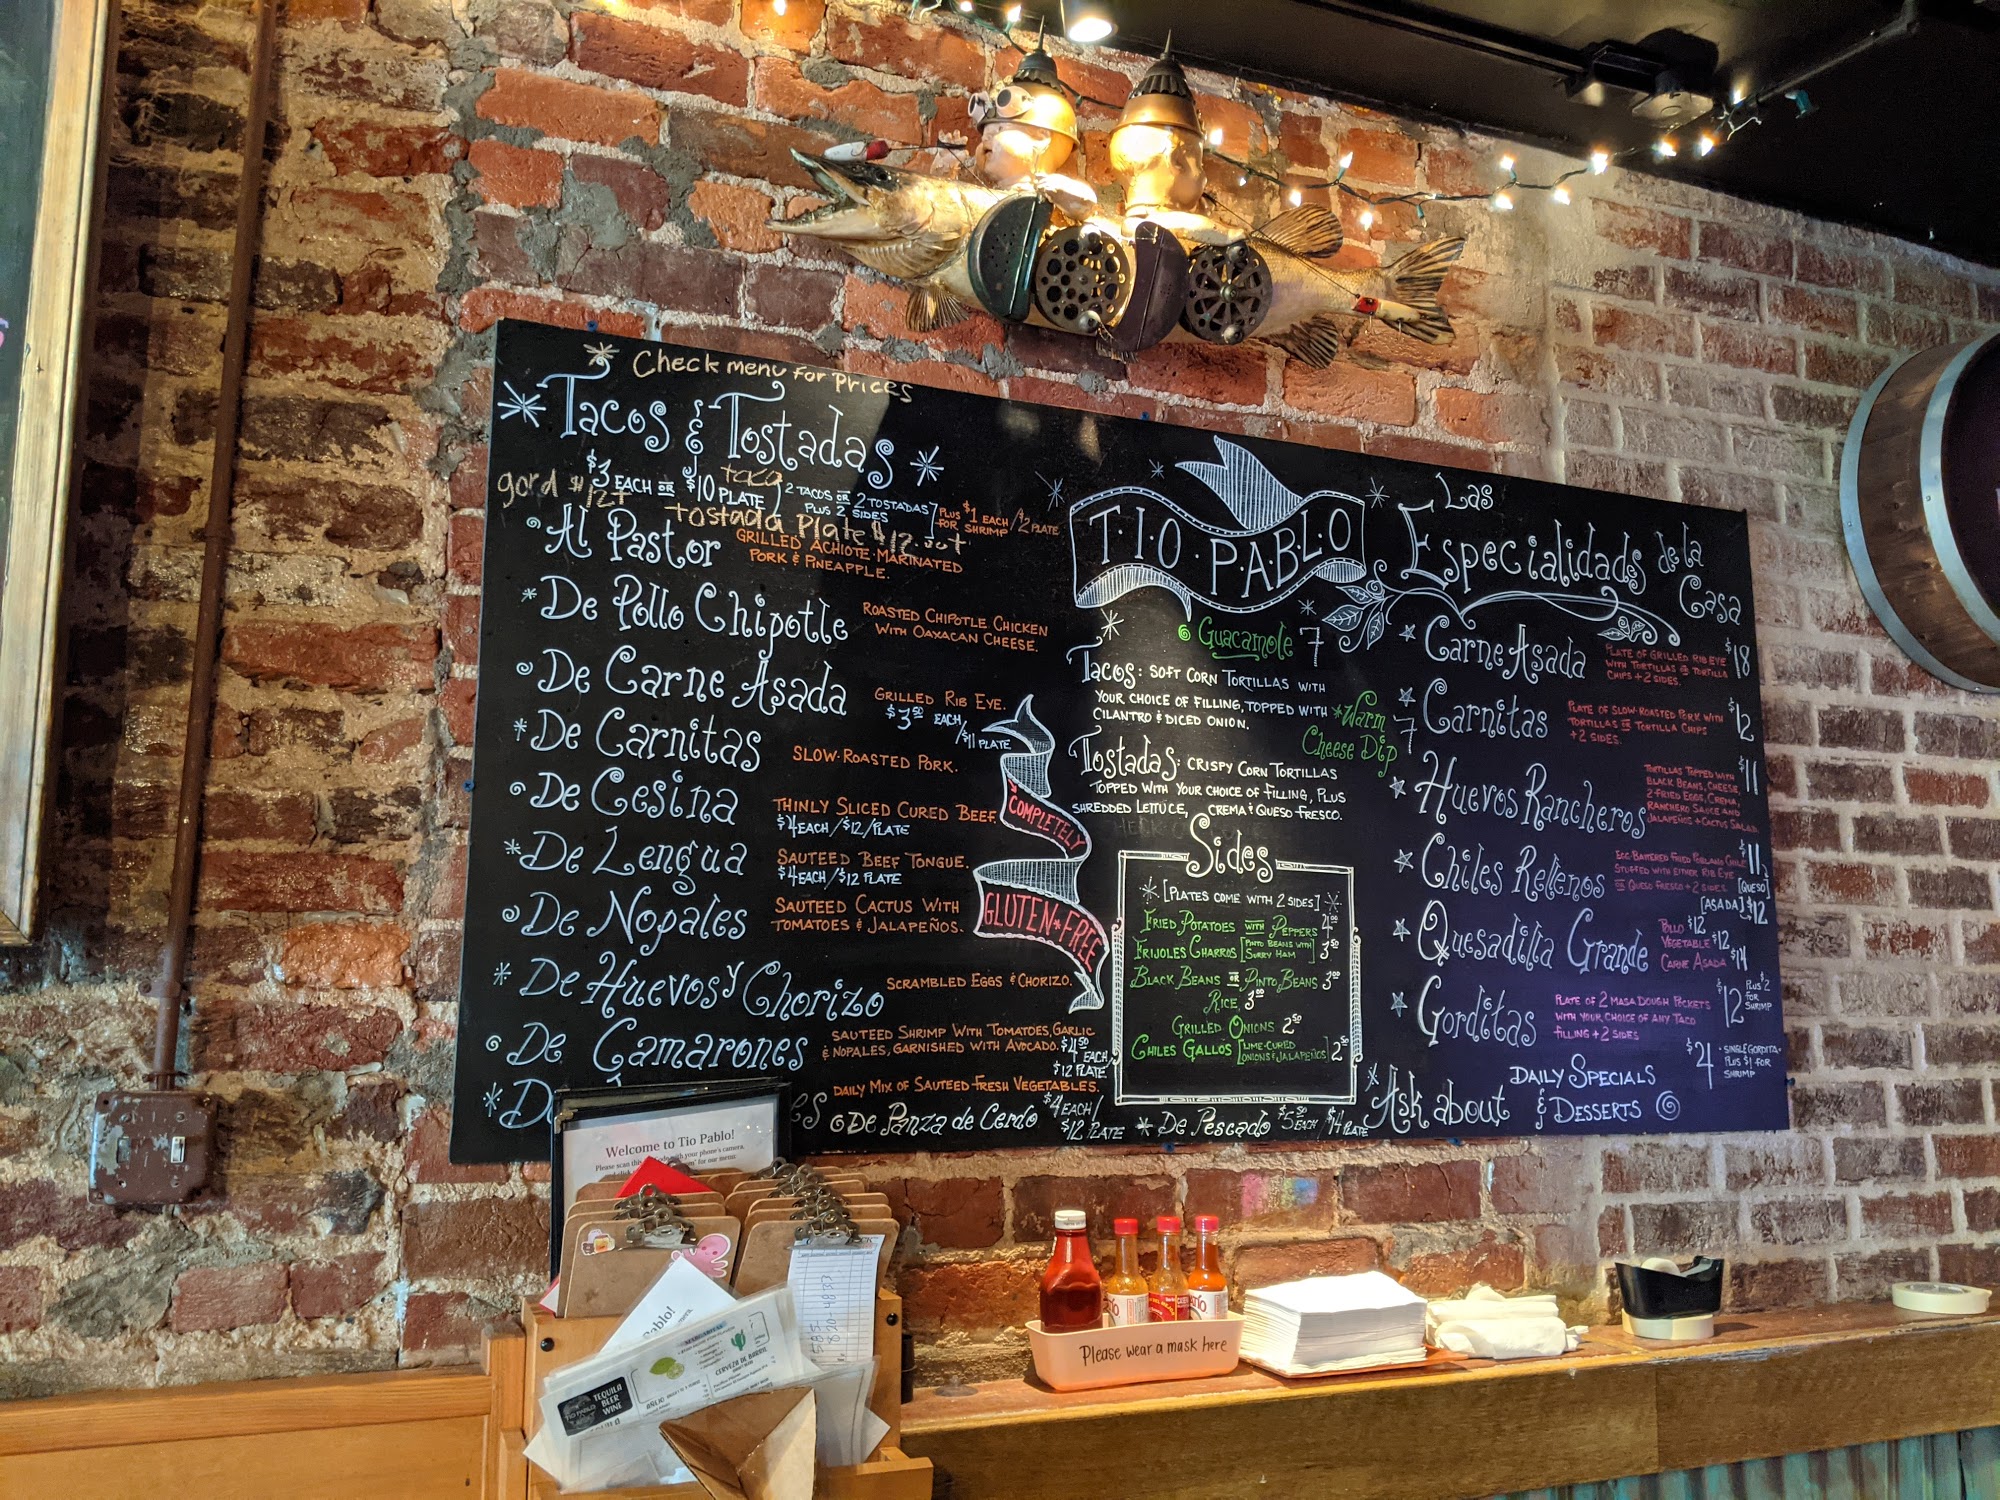 Check menu for Prices
Tacos & Tostadas
gord $12+
$3 EACH OR $10 PLATE
taco
2 TACOS OR 2 TOSTADAS
PLUS 2 SIDES
PLUS $1 EACH / $2 PLATE
FOR SHRIMP
tostada Plate $12
Al Pastor
GRILLED ACHIOTE-MARINATED
PORK & PINEAPPLE.
De Pollo Chipotle
ROASTED CHIPOTLE CHICKEN
WITH OAXACAN CHEESE.
De Carne Asada
GRILLED RIB EYE.
$3.50 EACH/
$11 PLATE
De Carnitas
SLOW-ROASTED PORK.
De Cesina
THINLY SLICED CURED BEEF
$4 EACH/$12/PLATE
De Lengua
SAUTEED BEEF TONGUE.
$4 EACH/$12 PLATE
De Nopales
SAUTEED CACTUS WITH
TOMATOES & JALAPEÑOS.
De Huevos y Chorizo
SCRAMBLED EGGS & CHORIZO.
De Camarones
SAUTEED SHRIMP WITH TOMATOES, GARLIC
& NOPALES, GARNISHED WITH AVOCADO.
$4.50 EACH/
$12 PLATE
De
es
DAILY MIX OF SAUTEED FRESH VEGETABLES.
De Panza de Cerdo
$4 EACH/
$12 PLATE
De Pescado
$5.50 EACH/$14 PLATE
COMPLETELY
GLUTEN*FREE
T·I·O·P·A·B·L·O
Guacamole 7
Tacos: SOFT CORN TORTILLAS WITH
YOUR CHOICE OF FILLING, TOPPED WITH
CILANTRO & DICED ONION.
Warm
Cheese Dip
7
Tostadas: CRISPY CORN TORTILLAS
TOPPED WITH YOUR CHOICE OF FILLING, PLUS
SHREDDED LETTUCE, CREMA & QUESO FRESCO.
Sides
[PLATES COME WITH 2 SIDES]
FRIED POTATOES WITH PEPPERS 4.00
FRIJOLES CHARROS [PINTO BEANS WITH
SURRY HAM] 3.50
BLACK BEANS OR PINTO BEANS 3.00
RICE 3.00
GRILLED ONIONS 2.50
CHILES GALLOS [LIME-CURED
ONIONS & JALAPEÑOS] 2.50
Las
Especialidades de la
Casa
Carne Asada
PLATE OF GRILLED RIB EYE
WITH TORTILLAS OR TORTILLA
CHIPS + 2 SIDES.
$18
Carnitas
PLATE OF SLOW-ROASTED PORK WITH
TORTILLAS OR TORTILLA CHIPS
+ 2 SIDES.
$12
Huevos Rancheros
TORTILLAS TOPPED WITH
BLACK BEANS, CHEESE,
2 FRIED EGGS, CREMA,
RANCHERO SAUCE AND
JALAPEÑOS + CACTUS SALAD.
$11
Chiles Rellenos
EGG-BATTERED FRIED POBLANO CHILE
STUFFED WITH EITHER RIB EYE
OR QUESO FRESCO + 2 SIDES
$11
[QUESO]
[ASADA] $12
Quesadilla Grande
POLLO $12
VEGETABLE $12
CARNE ASADA $14
Gorditas
PLATE OF 2 MASA DOUGH POCKETS
WITH YOUR CHOICE OF ANY TACO
FILLING + 2 SIDES
$12
PLUS $2
FOR
SHRIMP
$4
SINGLE GORDITA
PLUS $1 FOR
SHRIMP
Ask about
DAILY SPECIALS
& DESSERTS
Welcome to Tio Pablo!
Please scan this
with your phone's camera.
for our menu
585
820-4833
MARGARITAS
CERVEZA DE BARRIL
TIO PABLO
TEQUILA
BEER
WINE
Please wear a mask here